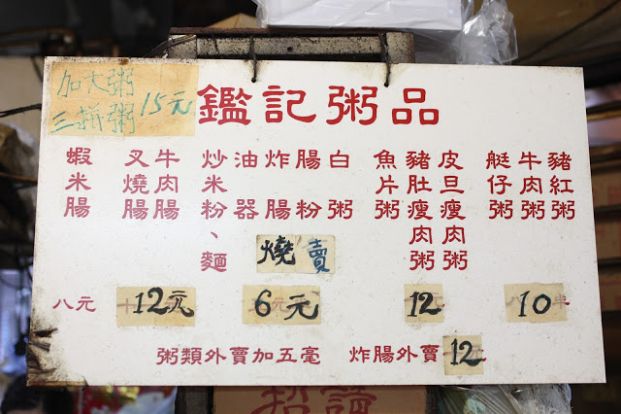 加大粥
三拼粥 15元
鑑記粥品
蝦米腸
叉燒腸
牛肉腸
炒米粉、麵
油器
炸腸
腸粉
白粥
燒賣
魚片粥
豬肚瘦肉粥
皮旦瘦肉粥
艇仔粥
牛肉粥
豬紅粥
八元 12元 6元 12 10
粥類外賣加五毫 炸腸外賣12